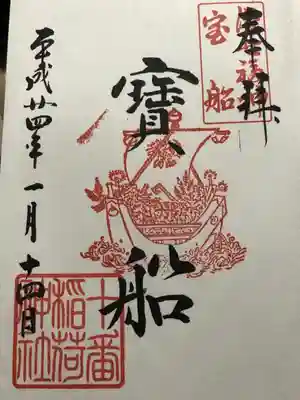 奉拝
宝船
寶船
平成廿四年一月十四日
十番
稲荷
神社